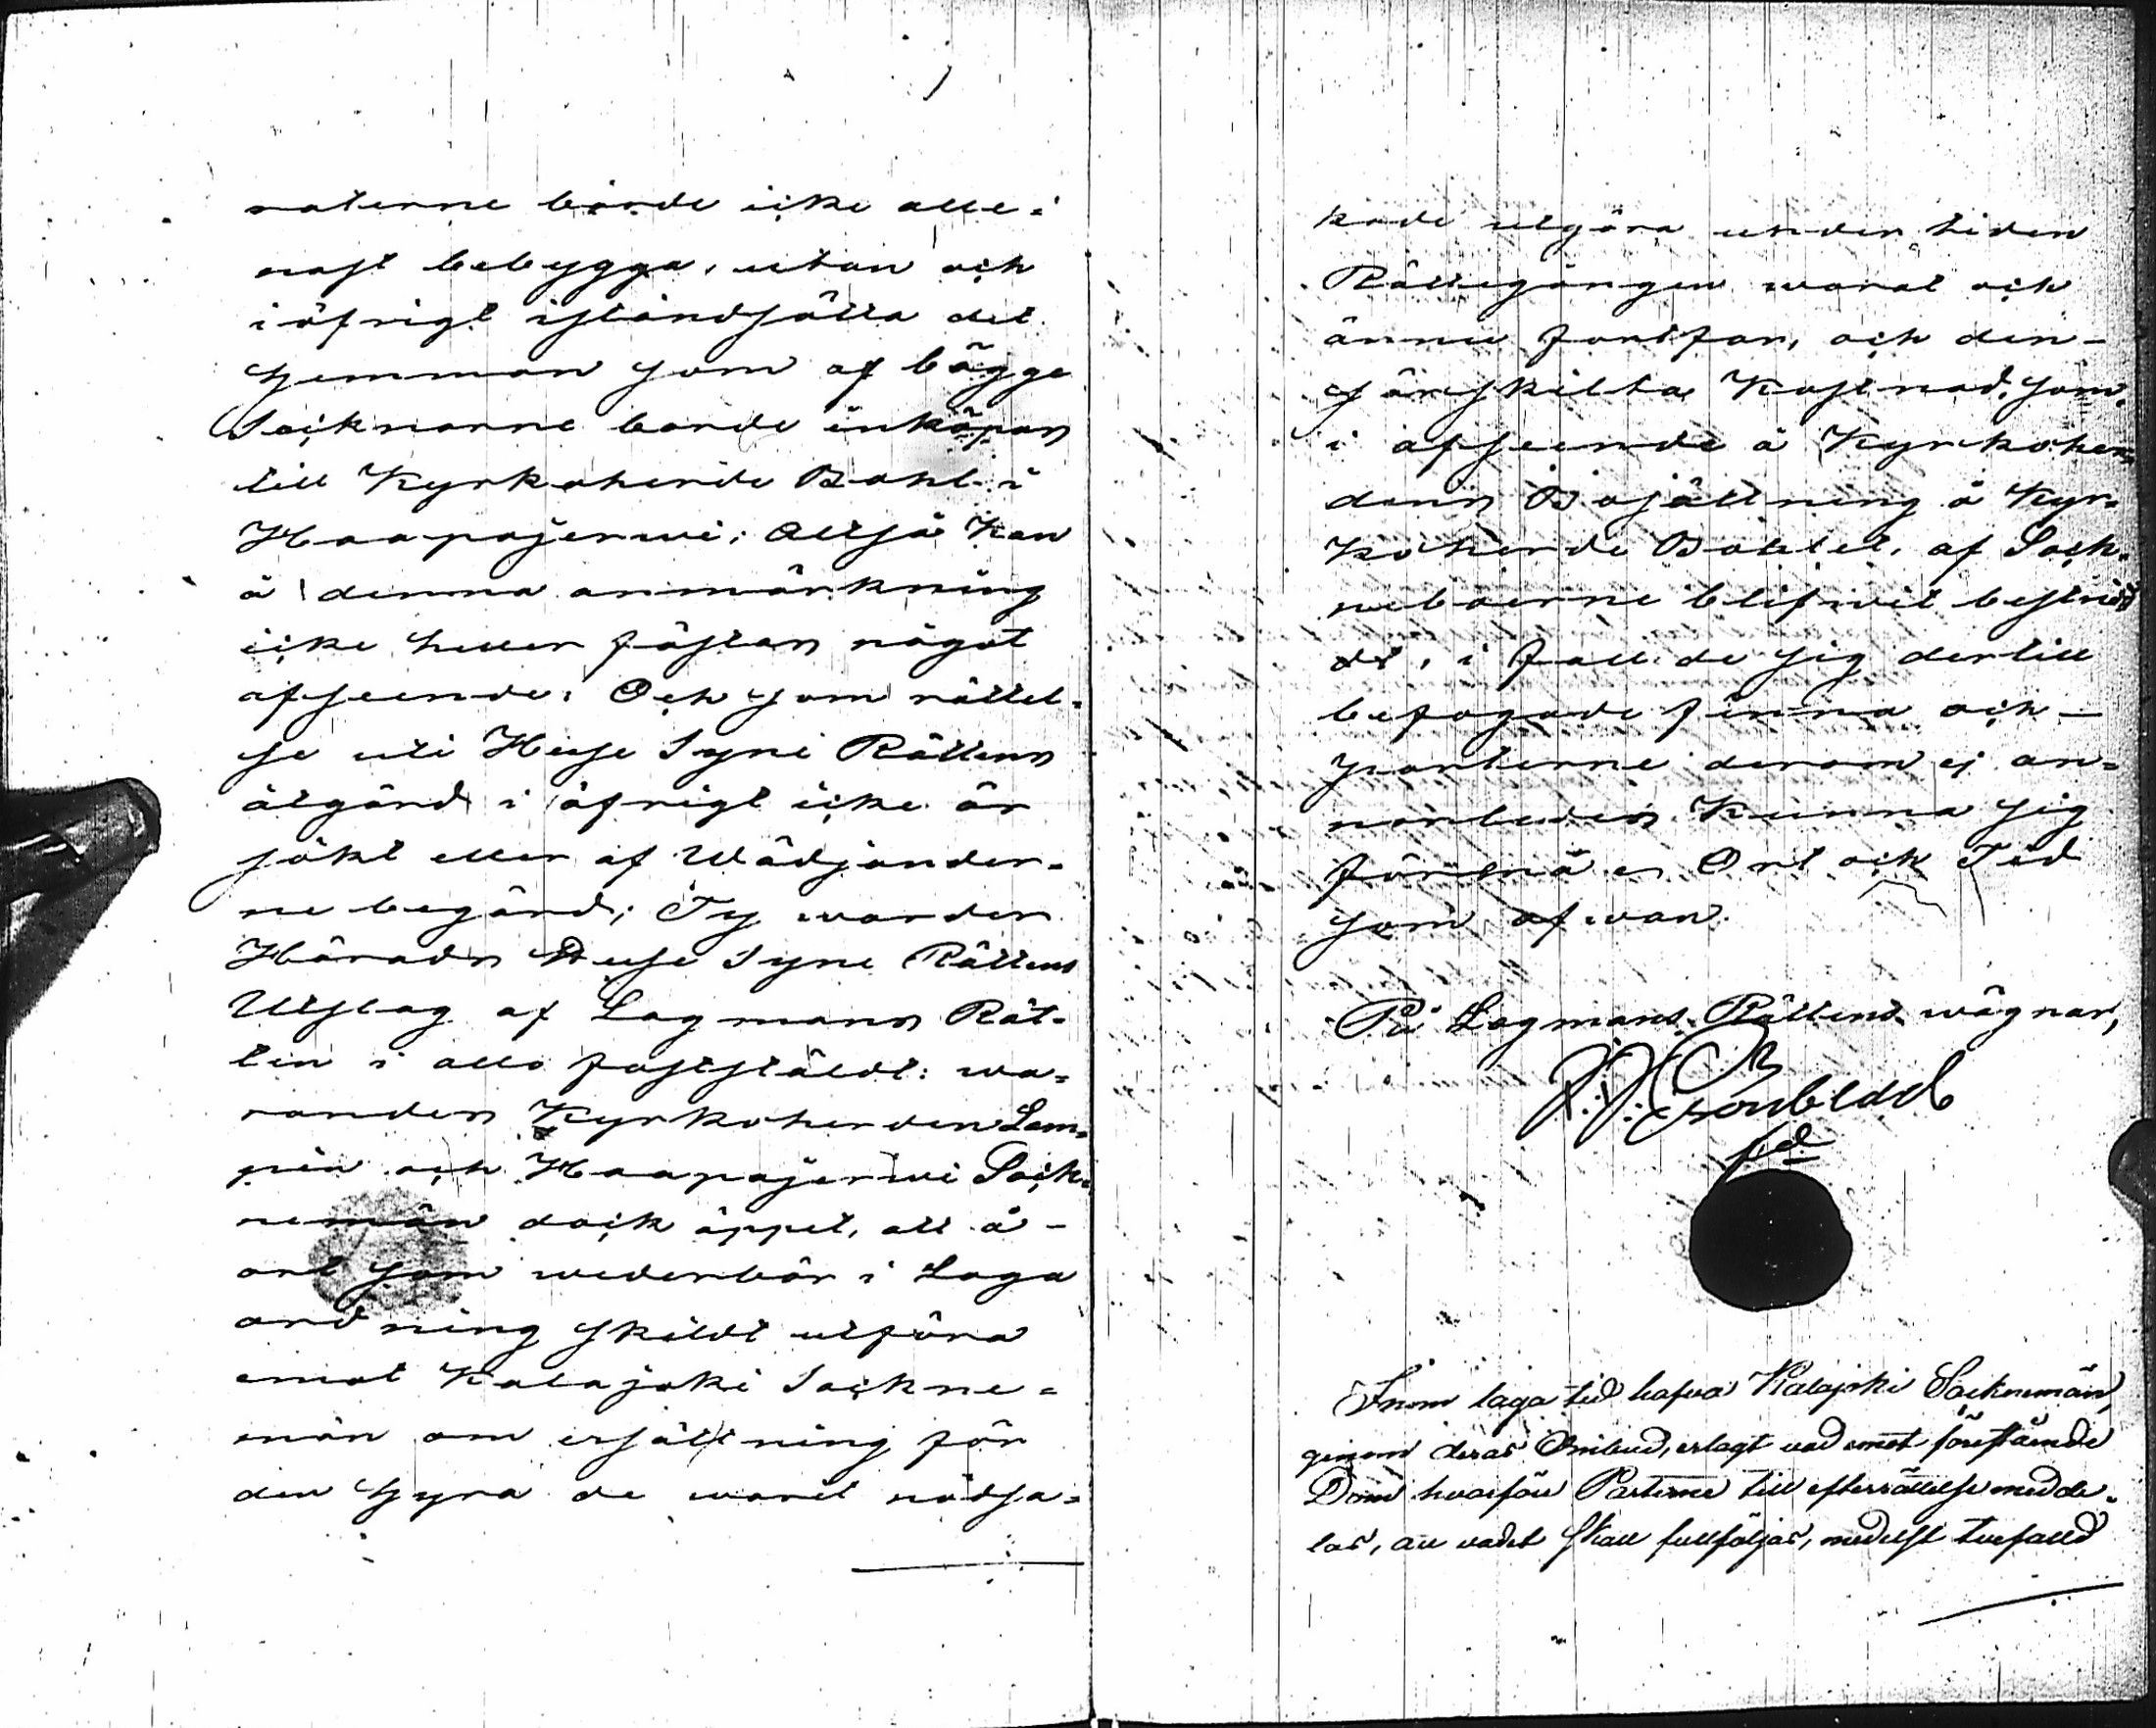 naterne börde icke alle=
nast bebygga, utan och
i öfrigt iståndsätta det
Hemman som af bägge
Socknarne borde inköpas
till Kyrkoherde Bohl i
Haapajerwi; Altså kan
å denna anmärkning
icke heller fästas något
afseende: Och som rättel=
se uti Huse Syne Rättens
åtgärd i öfrigt icke är
sökt eller af Wädjander=
ne begärd; Ty warder
Härads Huse Syne Rättens
Utslag af Lagmans Rät=
ten i allo fastställdt: wa=
randes Kyrkoherden Lam=
pen och Haapajerwi Sock=
nemän dock öppet, att å
ort som wederbör i Laga
ordning skildt utföra
emot Kalajoki Sockne=
män om ersättning för
den Hyra de warit nödsa=
kade utgöra under tiden
Rättegången warat och
ännu fortfar, och den
särskilta Kostnad, som
i afseende å Kyrkoher=
dens Bosättning å Kyr=
koherde Bohlet, af Sock=
neboerne blifwit bestrid
dt, i fall de sig dertill
befogade finna och
parterne derom ej an=
norledes kunna sig
förena Ort och Tid
som ofwan.
På Lagmans Rättens wägnar,
Inom laga tid hafva Kalajoki Socknemän,
genom deras Ombud, erlagt vad emot förestående
Dom hvarföre Parterne till efterrättelse medde=
las, att vadet skall fullföljas, medelst tvefalld